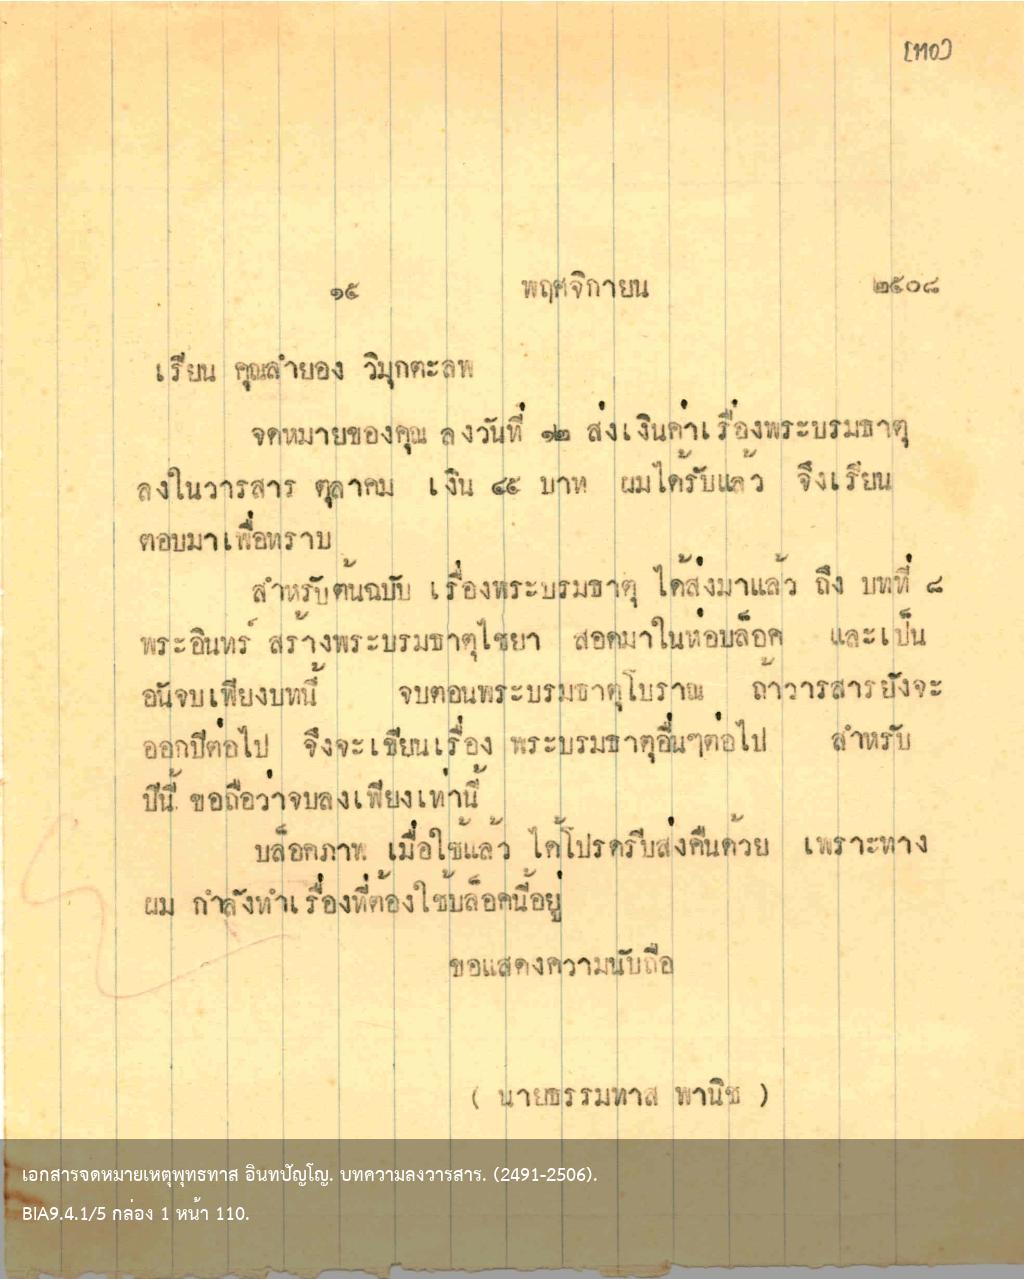 [๓๐]
๑๕ พฤศจิกายน ๒๕๐๘
เรียน คุณลำยอง วิมุกตะลพ
จดหมายของคุณ ลงวันที่ ๑๒ ส่งเงินค่าเรื่องพระบรมธาตุ
ลงในวารสาร ตุลาคม เงิน ๔๕ บาท ผมได้รับแล้ว จึงเรียน
ตอบมาเพื่อทราบ
สำหรับต้นฉบับ เรื่องพระบรมธาตุ ได้ส่งมาแล้ว ถึง บทที่ ๘
พระอินทร์ สร้างพระบรมธาตุไชยา สอดมาในห่อบล็อค และเป็น
อันจบเพียงบทนี้ จบตอนพระบรมธาตุโบราณ ถ้าวารสารยังจะ
ออกปีต่อไป จึงจะเขียนเรื่อง พระบรมธาตุอื่นๆต่อไป สำหรับ
ปีนี้ ขอถือว่าจบลงเพียงเท่านี้
บล็อคภาพ เมื่อใช้แล้ว ได้โปรดรีบส่งคืนด้วย เพราะทาง
ผม กำลังทำเรื่องที่ต้องใช้บล็อคนี้อยู่
ขอแสดงความนับถือ
( นายธรรมทาส พานิช )
เอกสารจดหมายเหตุพุทธทาส อินทปัญโญ. บทความลงวารสาร. (2491-2506).
BIA9.4.1/5 กล่อง 1 หน้า 110.